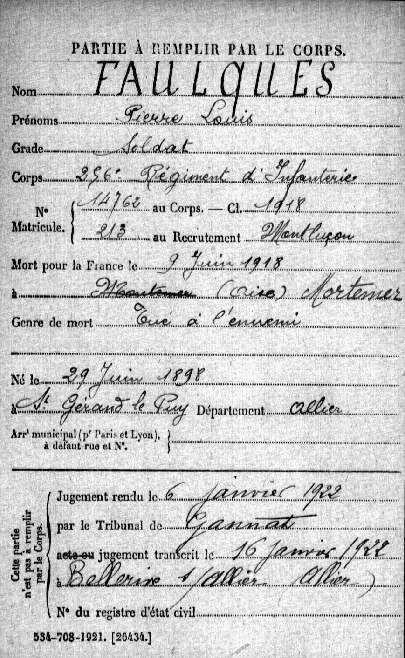 PARTIE À REMPLIR PAR LE CORPS.
Nom FAULQUES
Prénoms Pierre Louis
Grade Soldat
Corps 296e Régiment d'Infanterie
N° Matricule. { 14762 au Corps. — Cl. 1918
213 au Recrutement Montluçon
Mort pour la France le 9 Juin 1918
à (Oise) Mortemer
Genre de mort Tué à l'ennemi
Né le 29 Juin 1898
à St Gérand le Puy Département Allier
Arrt municipal (pr Paris et Lyon), à défaut rue et N°. }
Cette partie n'est pas à remplir par le Corps.
Jugement rendu le 6 Janvier 1922
par le Tribunal de Gannat
acte ou jugement transcrit le 16 Janvier 1922
à Bellerive s/ Allier (Allier)
N° du registre d'état civil
534-708-1921. [26434.]